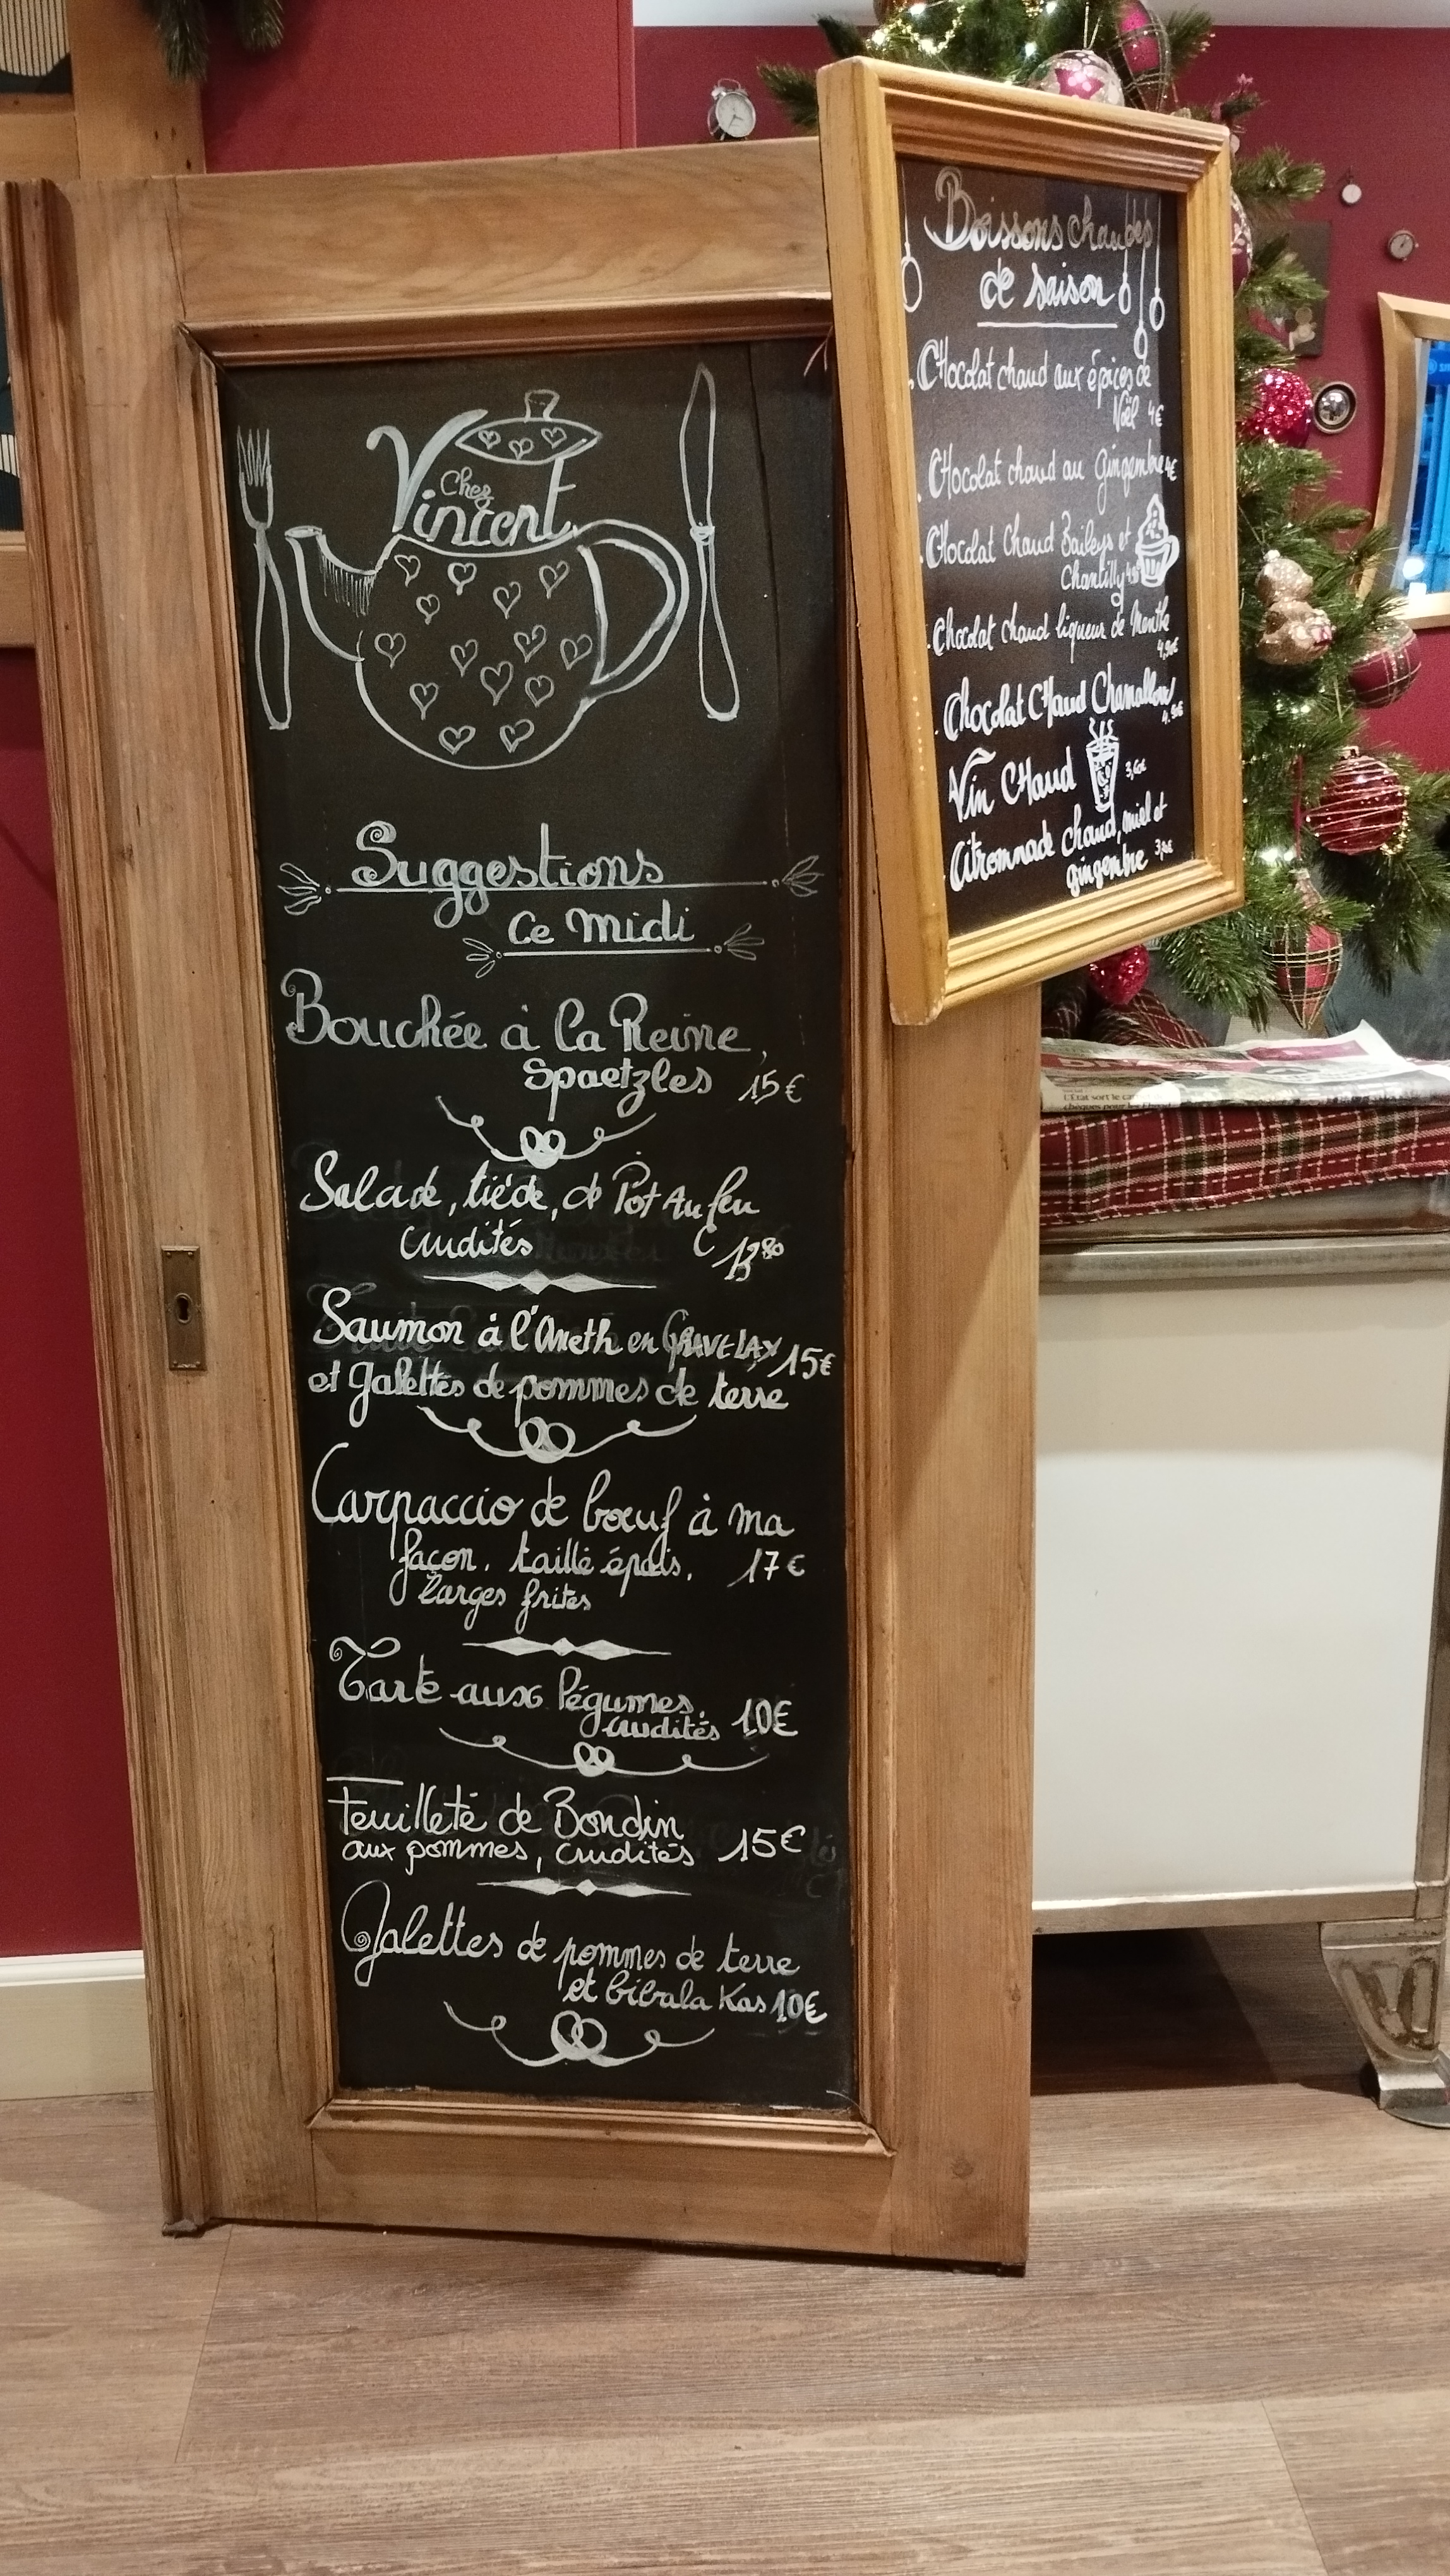 Chez
Vincent
Suggestions
ce midi
Bouchée à la Reine,
Spaetzles 15€
Salade, tiéde, de Pot Au feu
crudités
Saumon à l'Aneth en GRAVELAX 15€
et galettes de pommes de terre
Carpaccio de bœuf à ma
façon. taillé épais. 17€
larges frites
Tarte aux légumes.
crudités 10€
Feuilleté de Boudin
aux pommes, crudités 15€
Galettes de pommes de terre
et bibala Kas 10€
Boissons chaudes
de saison
. CHocolat chaud aux épices de
Noël 4€
. CHocolat chaud au Gingembre 4€
. CHocolat Chaud Baileys et
Chantilly
. Chocolat chaud liqueur de Menthe
4,90€
. Chocolat CHaud Chamallow
Vin CHaud
. Citronnade chaud, miel et
gingembre
L'État sort le
chèques pour